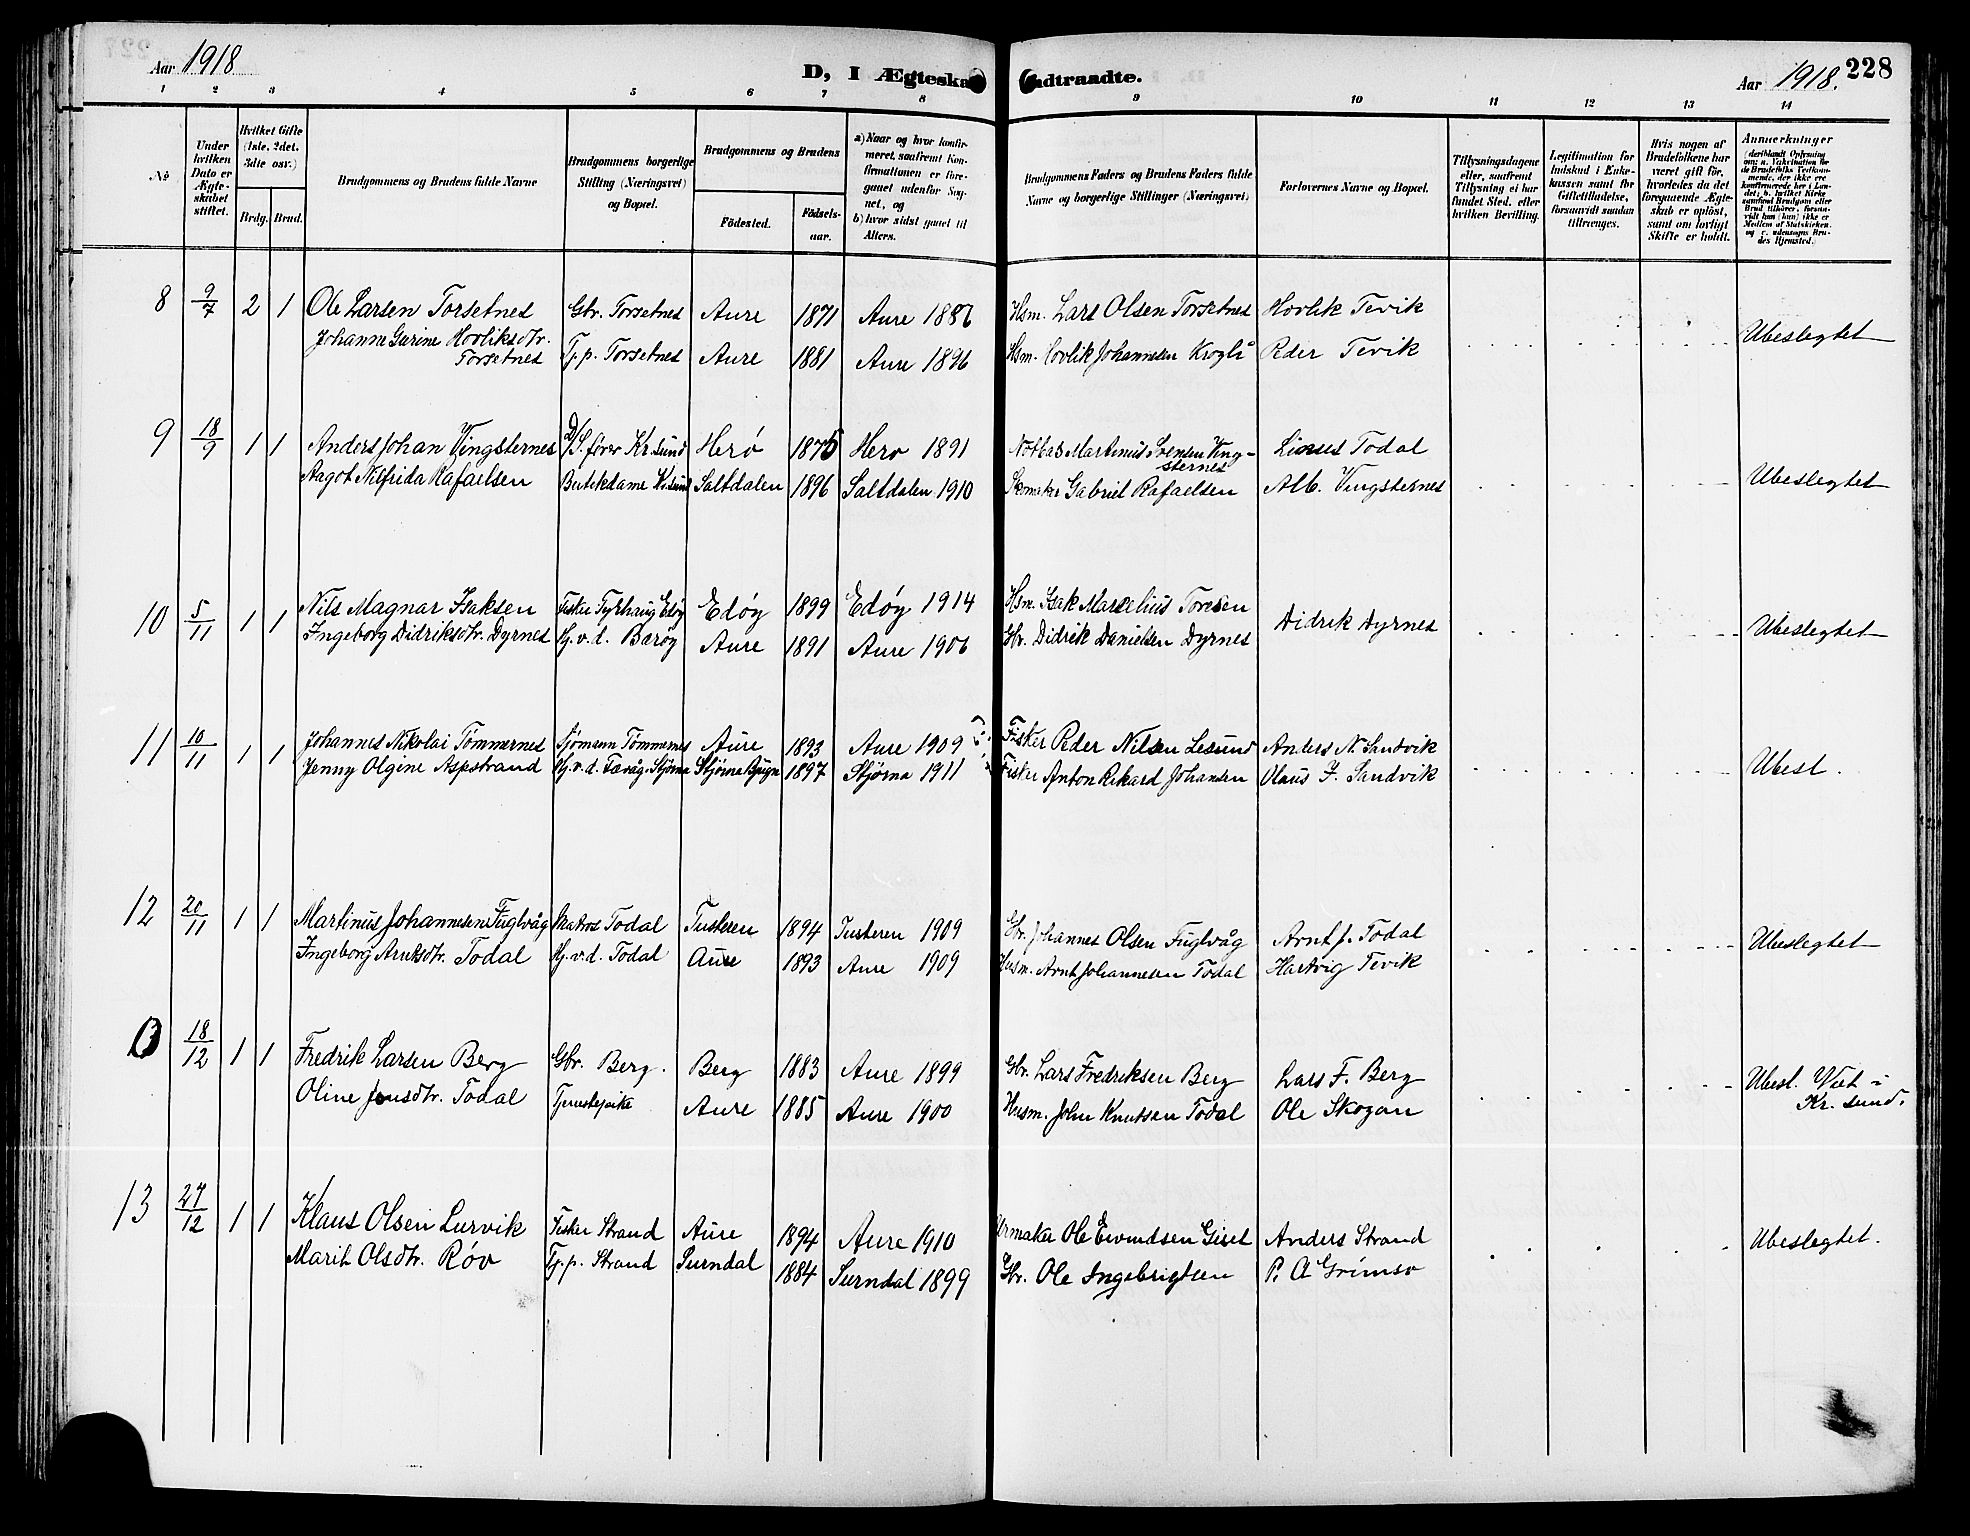 Aar 1918
D, I Ægteska
adtraadte.
Aar 1918.
228
1 2 3 4 5 6 7 8 9 10 11 12 13 14
No
Under hvilken Dato er Ægteskabet stiftet.
Hvilket Gifte (1ste, 2det, 3die osv.)
Brdg. Brud.
Brudgommens og Brudens fulde Navne
Brudgommens borgerlige Stilling (Næringsvei) og Bopæl.
Brudgommens og Brudens
Födested.
Födsels-aar.
a) Naar og hvor konfirmeret, saafremt Konfirmationen er foregaaet udenfor Sognet, og
b) hvor sidst gaaet til Alters.
Brudgommens Faders og Brudens Faders fulde Navne og borgerlige Stillinger (Næringsvei)
Forlovernes Navne og Bopæl.
Tillysningsdagene eller, saafremt Tillysning ei har fundet Sted, efter hvilken Bevilling.
Legitimation for Indskud i Enkekassen samt for Giftetilladelse, forsaavidt saadan tiltrænges.
Hvis nogen af Brudefolkene har været gift för, hvorledes da det foregaaende Ægteskab er oplöst, samt om lovligt Skifte er holdt.
Anmerkninger
8 9/7 2 1 Ole Larsen Torsetnes Gbr. Torsetnes Aure 1871 Aure 1886 Hsm. Lars Olsen Torsetnes Hovlik Tevik
Johanne Gurine Hovliksdtr. Torsetnes Tj.p. Torsetnes Aure 1881 Aure 1896 Hsm. Hovlik Johannesen Krogli Peder Tevik Ubeslegtet
9 18/9 1 1 Anders Johan Vingsternes D/S. fører Kr.sund Herø 1875 Herø 1891 Notbas Martinus Svensen Vingsternes Linses Todal
Aagot Alfrida Rafaelsen Butikdame Kr.sund Saltdalen 1896 Saltdalen 1910 Skomaker Gabriel Rafaelsen Alb. Vingsternes Ubeslegtet
10 5/11 1 1 Nils Magnar Isaksen Fisker Tyrhaug Edøy Edøy 1899 Edøy 1914 Hsm. Isak Marselius Toresen Didrik Dyrnes
Ingeborg Didriksdtr. Dyrnes Hj.v.d. Barøy Aure 1891 Aure 1906 Gbr. Didrik Danielsen Dyrnes Ubeslegtet
11 10/11 1 1 Johannes Nikolai Tømmernes Sjømann Tømmernes Aure 1893 Aure 1909 Fisker Peder Nilsen Lesund Anders N. Sandvik
Jenny Olgine Aspstrand Hj.v.d. Fævåg. Stjørna Stjørna Bjugn 1897 Stjørna 1911 Fisker Anton Rikard Johansen Olaus J. Sandvik Ubesl.
12 20/11 1 1 Martinus Johannesen Fuglvåg Matros Todal Tusteren 1894 Tusteren 1909 Gbr. Johannes Olsen Fuglvåg Arnt J. Todal
Ingeborg Arntsdtr. Todal Hj.v.d. Todal Aure 1893 Aure 1909 Husm. Arnt Johannesen Todal Hartvig Tevik Ubeslegtet
13 18/12 1 1 Fredrik Larsen Berg Gbr. Berg. Berg 1883 Aure 1899 Gbr. Lars Fredriksen Berg Lars F. Berg
Oline Jonsdtr. Todal Tjenestepike Aure 1885 Aure 1900 Husm. John Knutsen Todal Ole Skogan Ubesl. Viet i Kr. sund.
13 27/12 1 1 Klaus Olsen Lurvik Fisker Strand Aure 1894 Aure 1910 Urmaker Ole Eivindsen Giset Anders Strand
Marit Olsdtr. Røv Tj.p. Strand Surndal 1884 Surndal 1899 Gbr. Ole Ingebrigtsen P. A Grimsø Ubeslegtet.